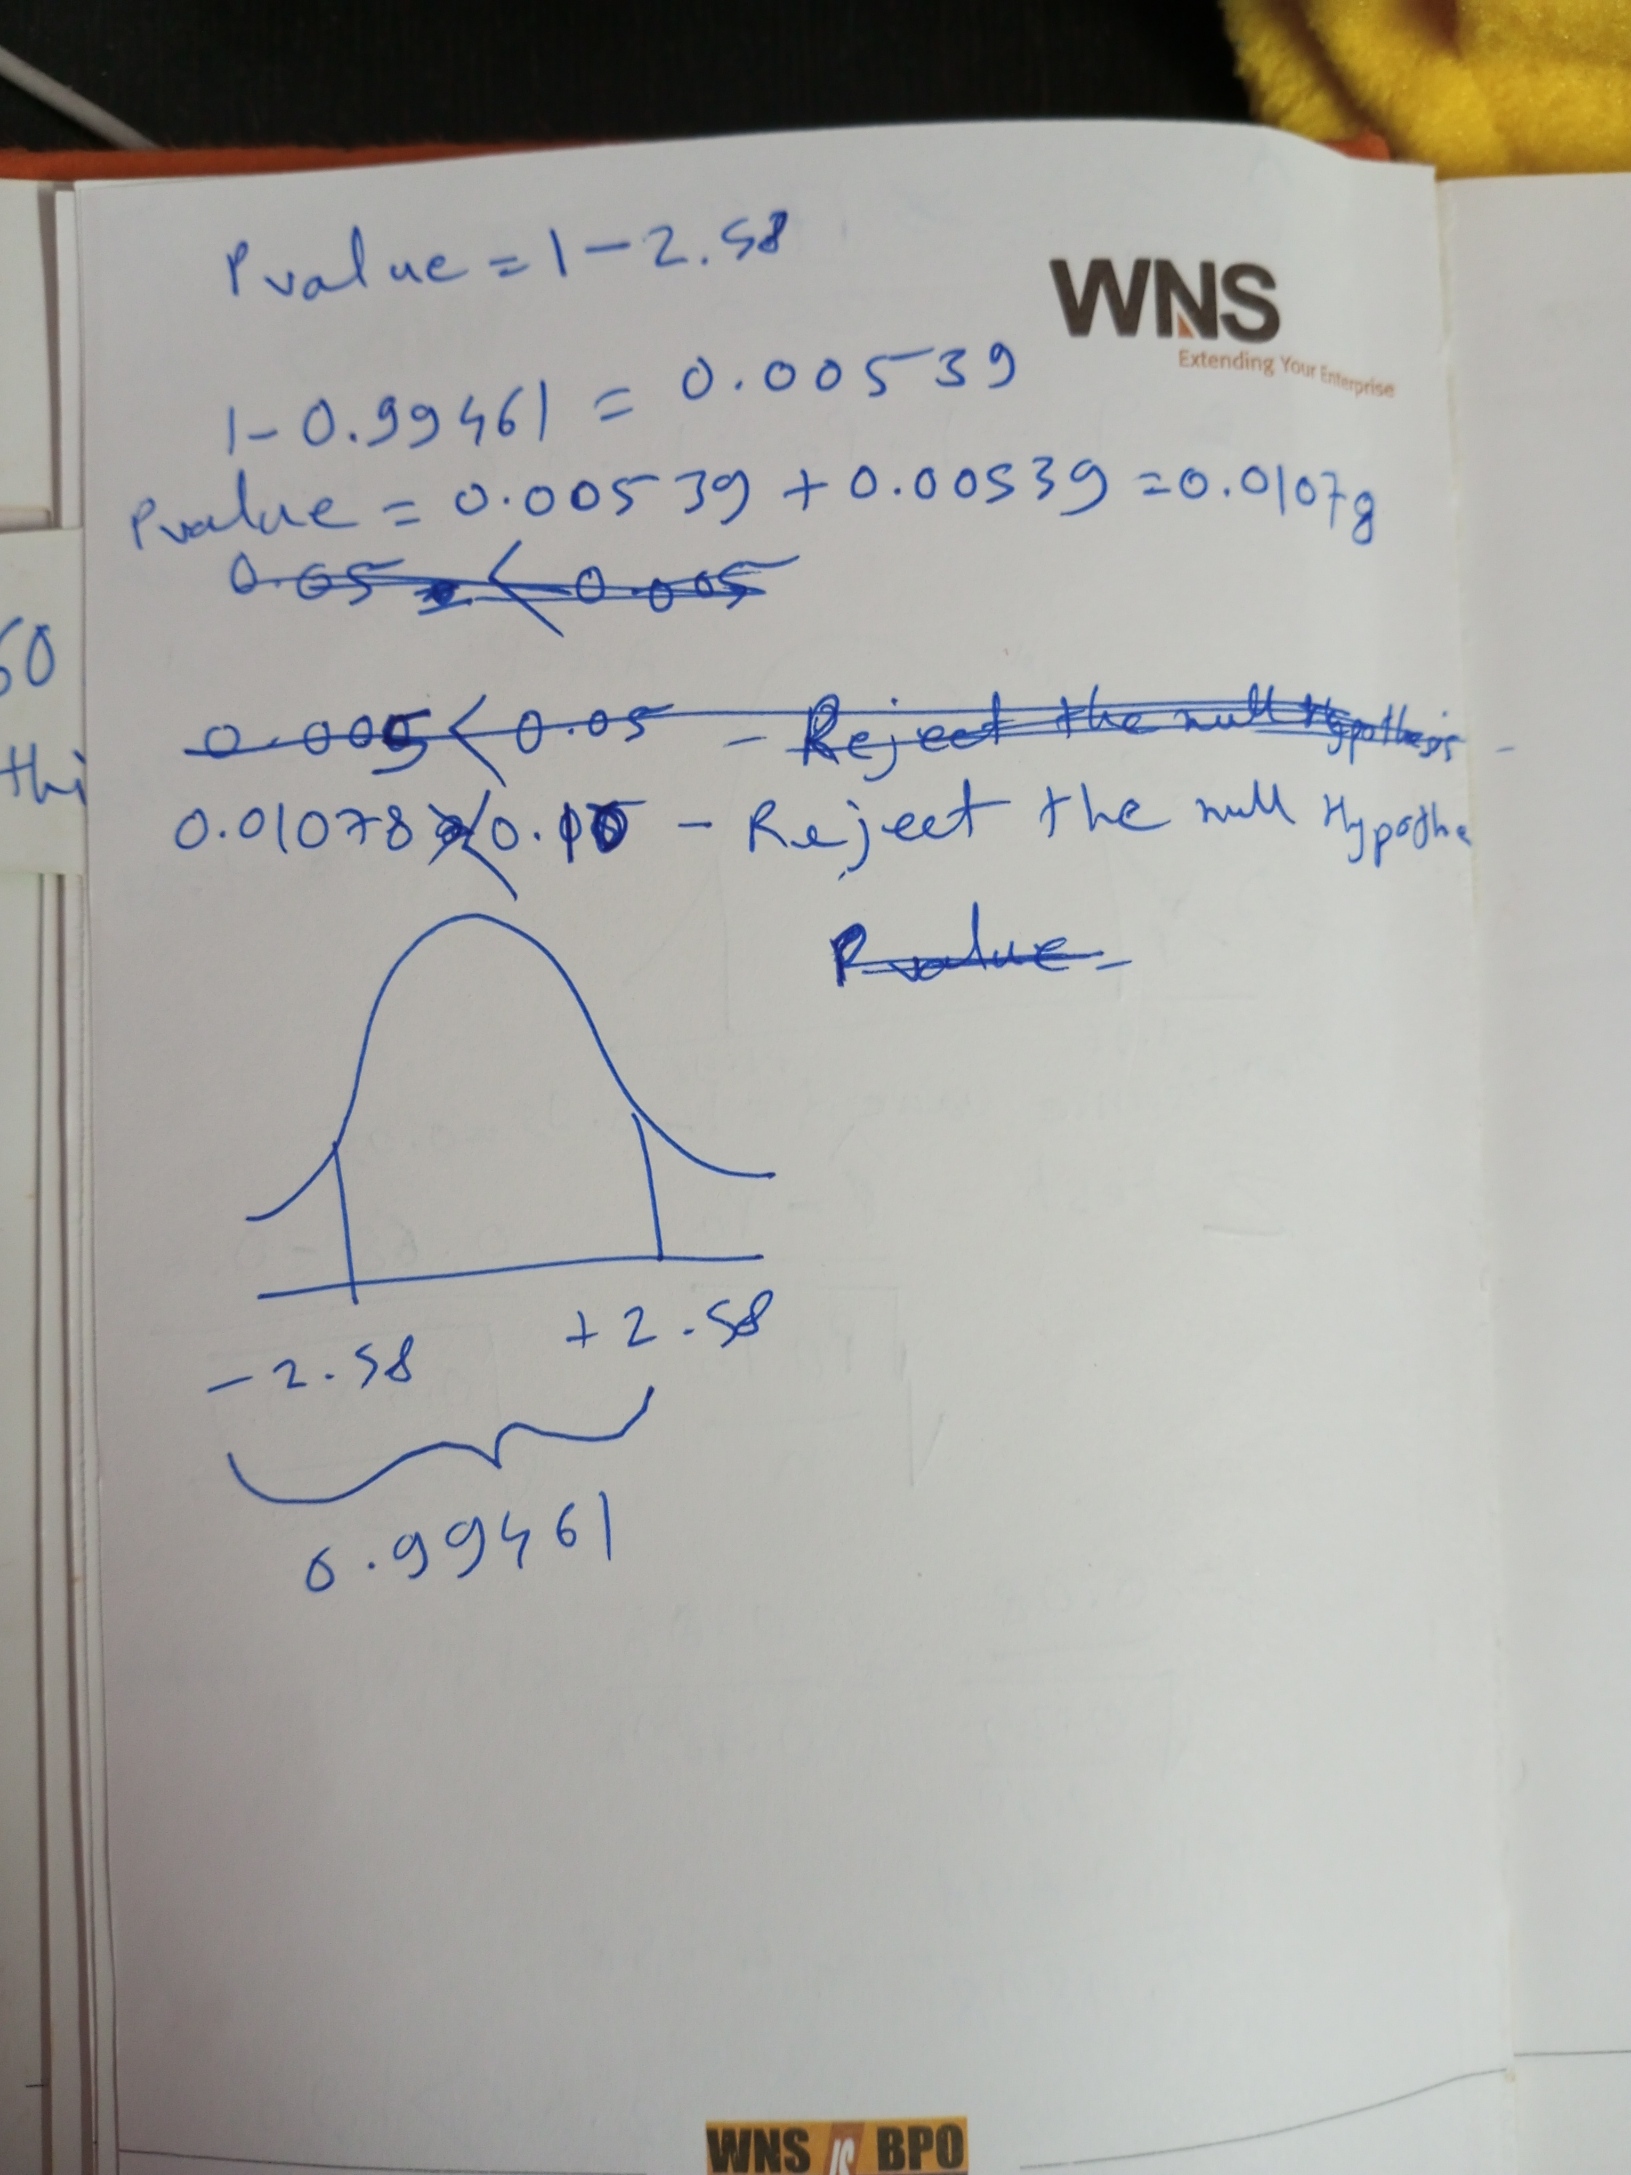 Pvalue = 1 - 2.58
WNS
Extending Your Enterprise
1 - 0.99461 = 0.00539
Pvalue = 0.00539 + 0.00539 = 0.01078
0.05 < 0.005
60
0.005 < 0.05 - Reject the null Hypothesis -
thi
0.01078 < 0.10 - Reject the null Hypothe
P value -
-2.58
+2.58
0.99461
WNS is BPO